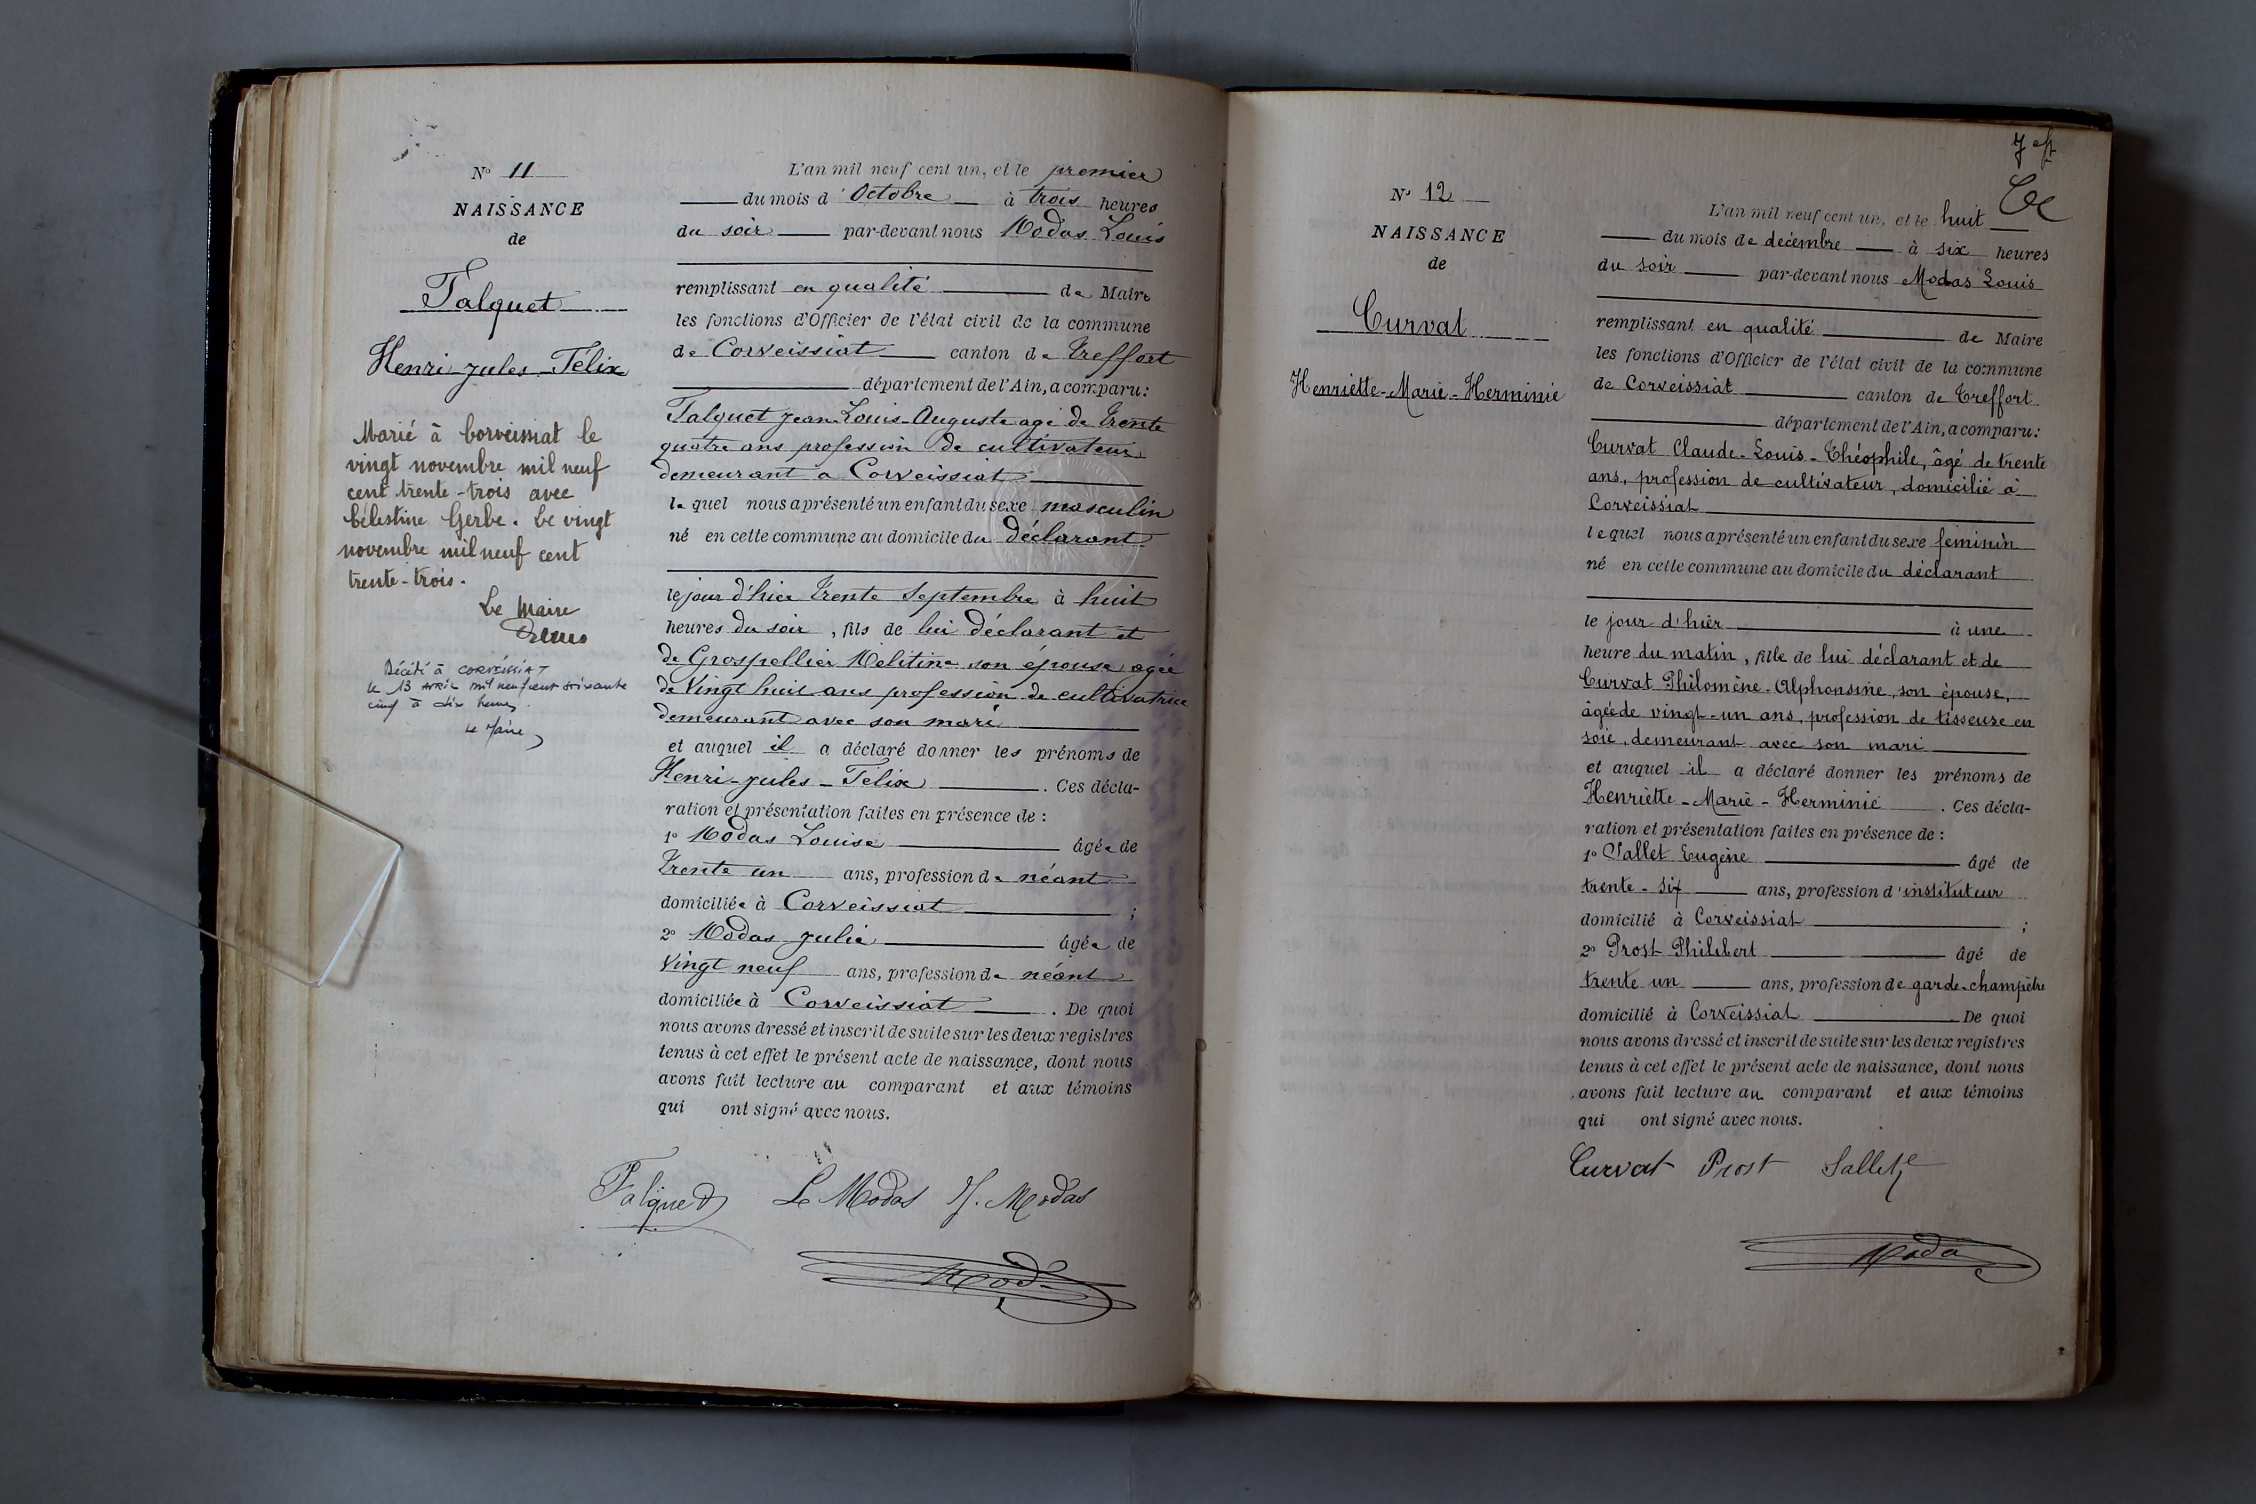 N° 11
NAISSANCE
de
Falquet
Henri-Jules-Félix
Marié à Corveissiat le
vingt novembre mil neuf
cent trente-trois avec
Célestine Gerbe. Le vingt
novembre mil neuf cent
trente-trois.
Le Maire
Décédé à CORVEISSIAT
le 13 AVRIL mil neuf cent soixante
cinq à dix heures.
Le Maire
L'an mil neuf cent un, et le premier
du mois d'Octobre à trois heures
du soir par-devant nous Modas Louis
remplissant en qualité de Maire
les fonctions d'Officier de l'état civil de la commune
de Corveissiat canton de Treffort
département de l'Ain, a comparu:
Falquet Jean-Louis-Auguste agé de trente
quatre ans profession de cultivateur
demeurant a Corveissiat
lequel nous a présenté un enfant du sexe masculin
né en cette commune au domicile du déclarant
le jour d'hier trente Septembre à huit
heures du soir, fils de lui déclarant et
de Grospellier Mélitine son épouse, agée
de Vingt huit ans profession de cultivatrice
demeurant avec son mari
et auquel il a déclaré donner les prénoms de
Henri-Jules-Félix. Ces décla-
ration et présentation faites en présence de :
1° Modas Louise âgée de
trente un ans, profession de néant
domiciliée à Corveissiat ;
2° Modas Julie âgée de
Vingt neuf ans, profession de néant
domiciliée à Corveissiat. De quoi
nous avons dressé et inscrit de suite sur les deux registres
tenus à cet effet le présent acte de naissance, dont nous
avons fait lecture au comparant et aux témoins
qui ont signé avec nous.
Falquet Le Modas J. Modas
Mod
7
N° 12
NAISSANCE
de
Curvat
Henriette-Marie-Herminie
L'an mil neuf cent un, et le huit
du mois de décembre à six heures
du soir par-devant nous Modas Louis
remplissant en qualité de Maire
les fonctions d'Officier de l'état civil de la commune
de Corveissiat canton de Treffort
département de l'Ain, a comparu:
Curvat Claude-Louis-Théophile, âgé de trente
ans, profession de cultivateur, domicilié à
Corveissiat
lequel nous a présenté un enfant du sexe féminin
né en cette commune au domicile du déclarant
le jour d'hier à une
heure du matin, fille de lui déclarant et de
Curvat Philomène-Alphonsine, son épouse,
âgée de vingt-un ans, profession de tisseuse en
soie, demeurant avec son mari
et auquel il a déclaré donner les prénoms de
Henriette-Marie-Herminie. Ces décla-
ration et présentation faites en présence de :
1° Sallet Eugène âgé de
trente-six ans, profession d'instituteur
domicilié à Corveissiat ;
2° Prost Philibert âgé de
trente un ans, profession de garde-champêtre
domicilié à Corveissiat De quoi
nous avons dressé et inscrit de suite sur les deux registres
tenus à cet effet le présent acte de naissance, dont nous
avons fait lecture au comparant et aux témoins
qui ont signé avec nous.
Curvat Prost Sallet
Moda